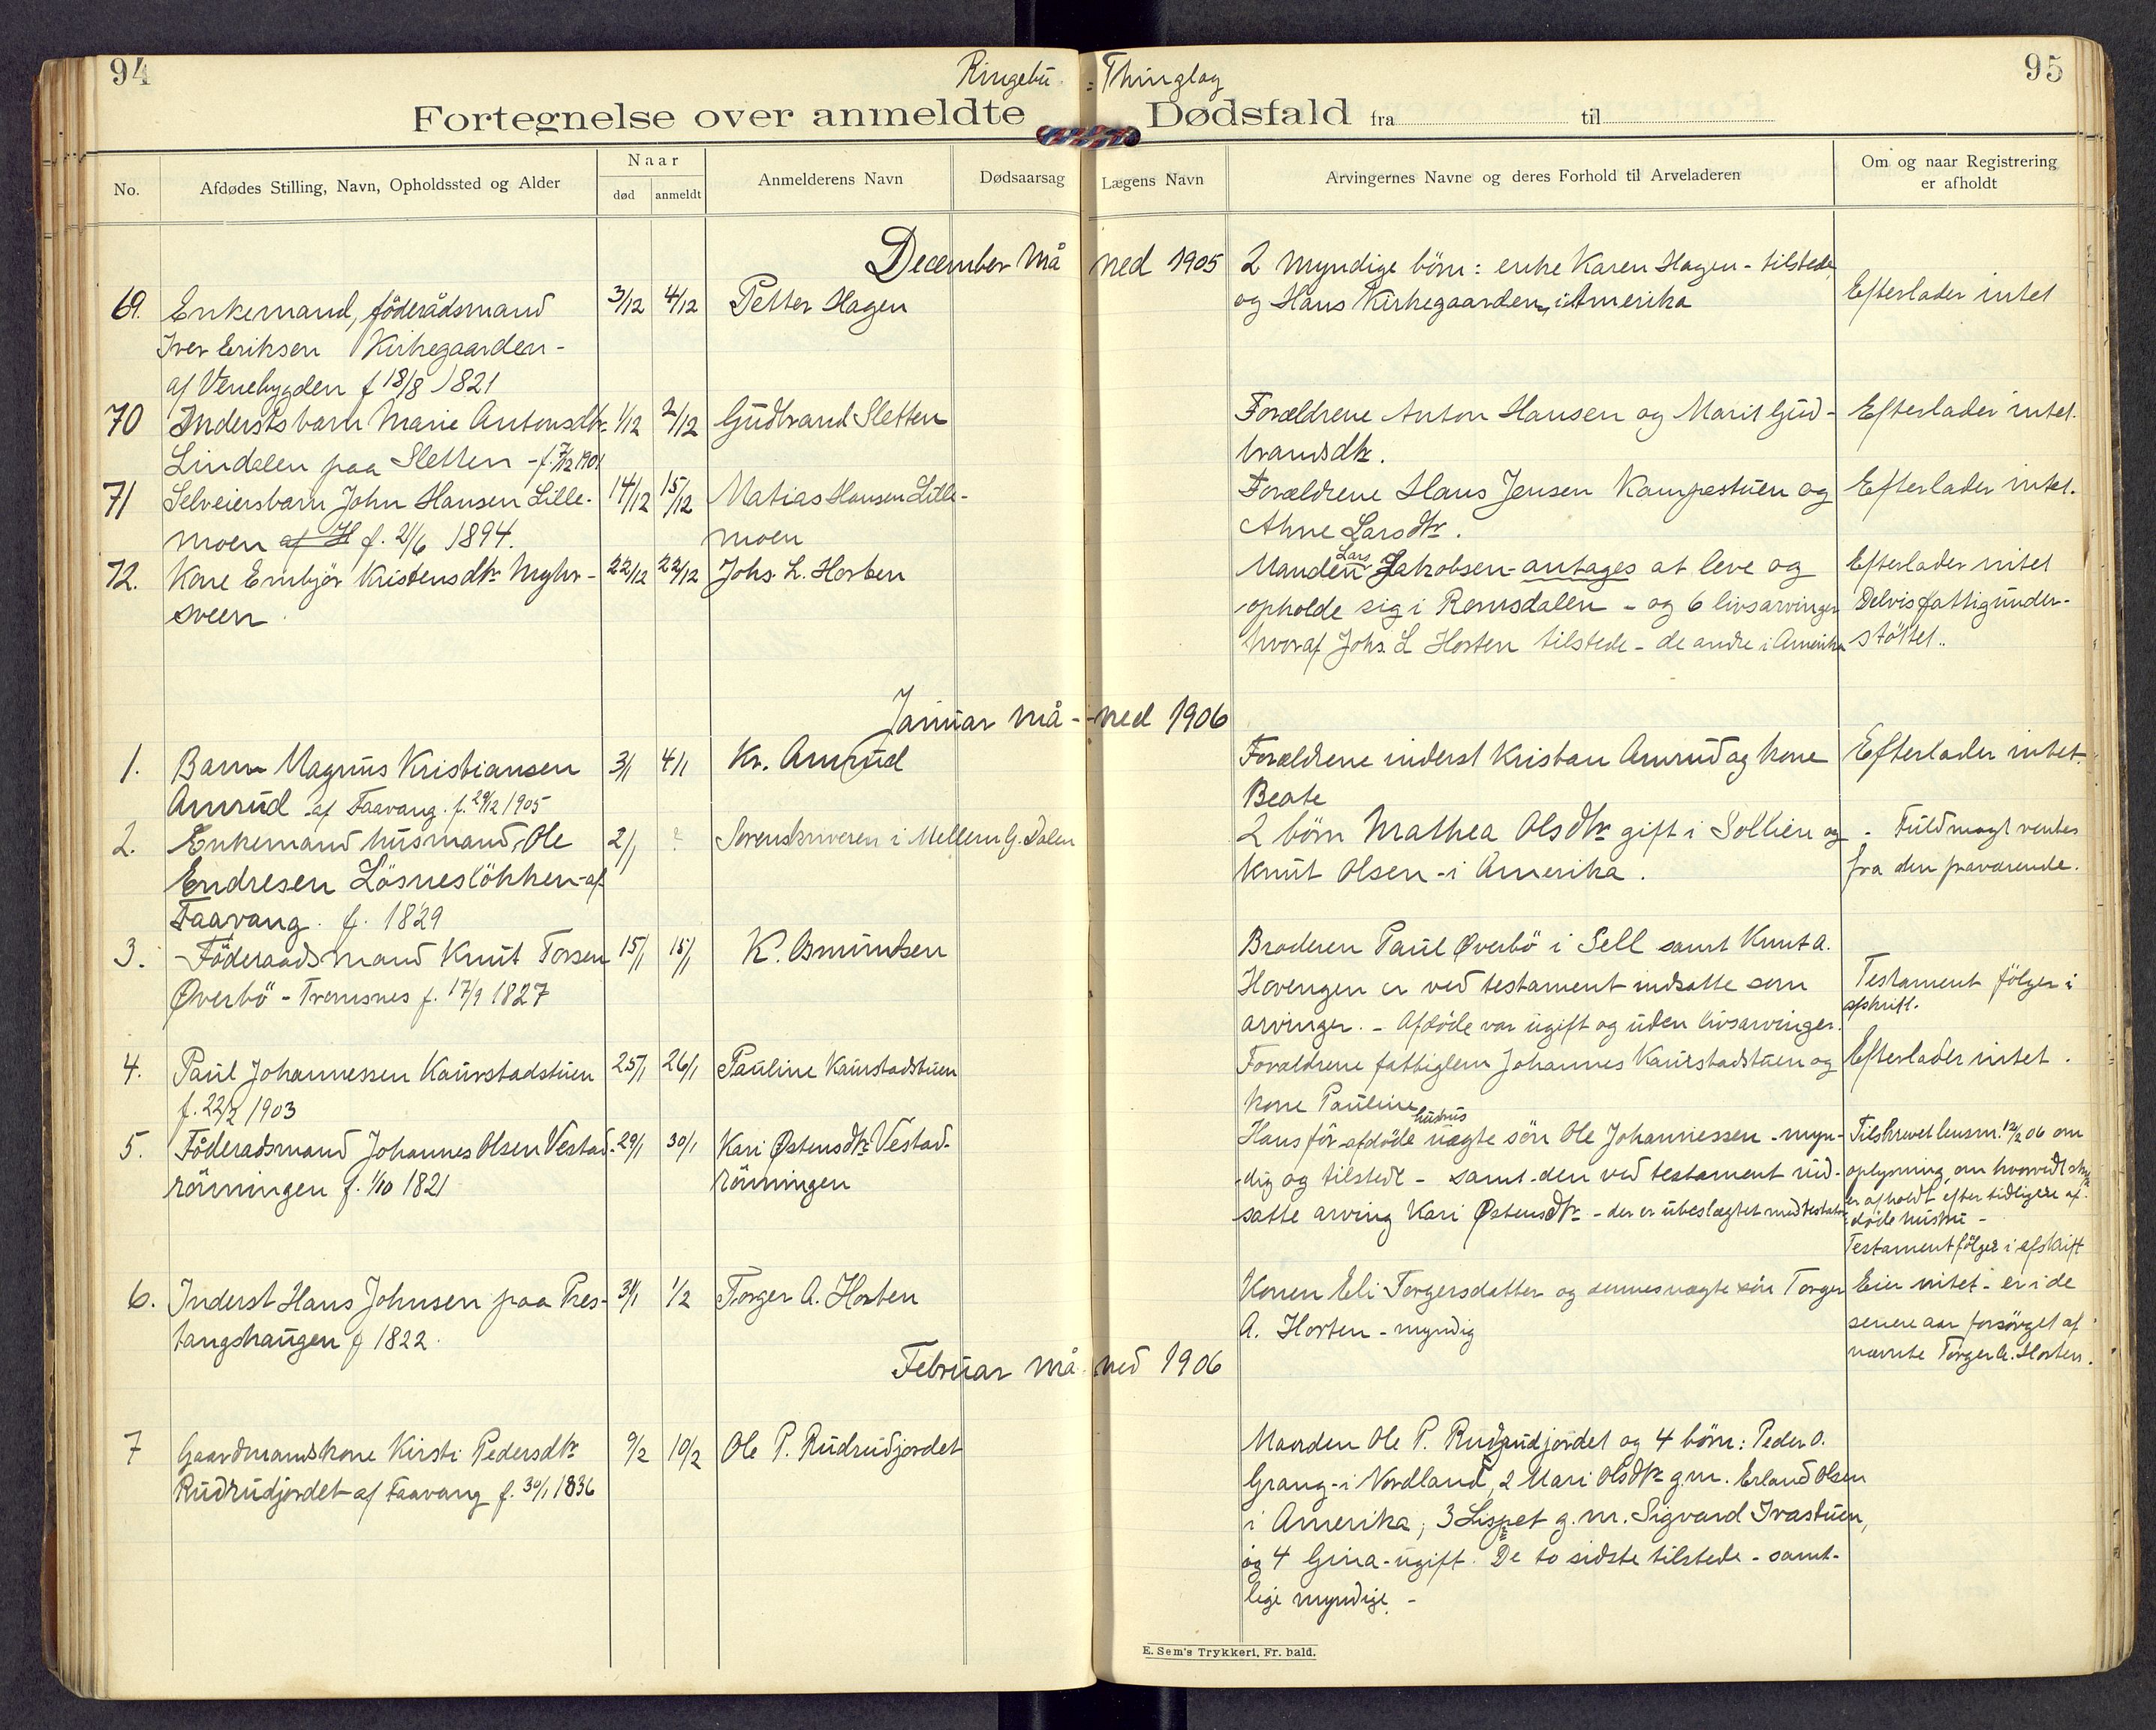 94
Ringebu : Thinglag
95
Fortegnelse over anmeldte Dødsfald fra til
No.
Afdødes Stilling, Navn, Opholdssted og Alder
Naar
død
anmeldt
Anmelderens Navn
Dødsaarsag
Lægens Navn
Arvingernes Navne og deres Forhold til Arveladeren
Om og naar Registrering
er afholdt
December må ned 1905
69. Enkemand, föderådsmand
Iver Eriksen Kirkegaarden -
af Venebygden f 18/8 1821
3/12 4/12 Petter Hagen
2 myndige börn: enke Karen Hagen - tilstede
og Hans Kirkegaarden, i Amerika
Efterlader intet
70 Inderstsbarn Marie Antonsdtr.
Lindalen paa Sletten - f. 7/12 1901
1/12 2/12 Gudbrand Sletten
Forældrene Anton Hansen og Marit Gud-
bransdtr.
Efterlader intet.
71 Selveiersbarn John Hansen Lille-
moen af H f. 21/6 1894.
14/12 15/12 Matias Hansen Lille-
moen
Forældrene Hans Jensen Kampestuen og
Ahne Larsdtr.
Efterlader intet.
72. Kone Embjör Kristensdtr Myhr-
sveen
22/12 22/12 Johs. L. Horten
Manden Lars Jakobsen - antages at leve og
opholde sig i Romsdalen - og 6 livsarvinger
hvoraf Johs. L Horten tilstede - de andre i Amerika
Efterlader intet
Delvis fattigunder-
støttet..
Januar må - - ned 1906
1. Barn Magnus Kristiansen
Amrud af Faavang. f. 29/12 1905
3/1 4/1 Kr. Amrud
Forældrene inderst Kristian Amrud og kone
Beate
Efterlader intet.
2. Enkemand husmand, Ole
Endresen Lösneslökken - af
Faavang. f. 1829
2/1 ? Sorenskriveren i Mellem G. Dalen
2 börn Mathea Olsdtr gift i Sollien og
Knut Olsen - i Amerika.
- Fuldmagt ventes
fra den fraværende.
3. Föderaadsmand Knut Torsen
Øverbö - Tromsnes f. 17/9 1827
15/1 15/1 K. Asmundsen
Broderen Paul Øverbö i Sell samt Knut A.
Hovengen er ved testament indsatte som
arvinger. - Afdöde var ugift og uden livsarvinger.
Testament fölger i
afskrift.
4. Paul Johannessen Kaurstadstuen
f. 22/2 1903
25/1 26/1 Pauline Kaurstadstuen
Forældrene fattiglem Johannes Kaurstadstuen og
kone Pauline
Efterlader intet.
5. Föderadsmand Johannes Olsen Vestad-
rönningen f. 1/10 1821
29/1 30/1 Kari Østensdtr Vestad-
rönningen
Hans för afdöde hustrus uægte sön Ole Johannessen - myn-
dig og tilstede - samt den ved testament ind-
satte arving Kari Østensdtr - der er ubeslægtet med testator
Tilskrevet lensm. 12/2 06 om
oplysning om hvorvidt
er afholdt efter tidligere af-
döde hustru -
Testament fölger i afskrift
6. Inderst Hans Johnsen paa Pres-
tangshaugen f 1822.
31/1 1/2 Torger A. Horten
Konen Eli Torgersdatter og dennes uægte sön Torger
A. Horten - myndig
Eier intet - er i de
senere aar forsörget af
nævnte Torger A. Horten.
Februar må ned 1906
7 Gaardmandskone Kirsti Pedersdtr
Rudrudjordet af Faavang f. 30/1 1836
9/2 10/2 Ole P. Rudrudjordet
Manden Ole P. Rudrudjordet og 4 börn: Peder O.
Grang - i Nordland, 2 Mari Olsdtr g.m. Erland Olsen
i Amerika, 3 Lispet g.m. Sigvard Ivastuen,
og 4 Gina - ugift. De to sidste tilstede - samt-
lige myndige. -
E. Sem's Trykkeri, Fr. hald.